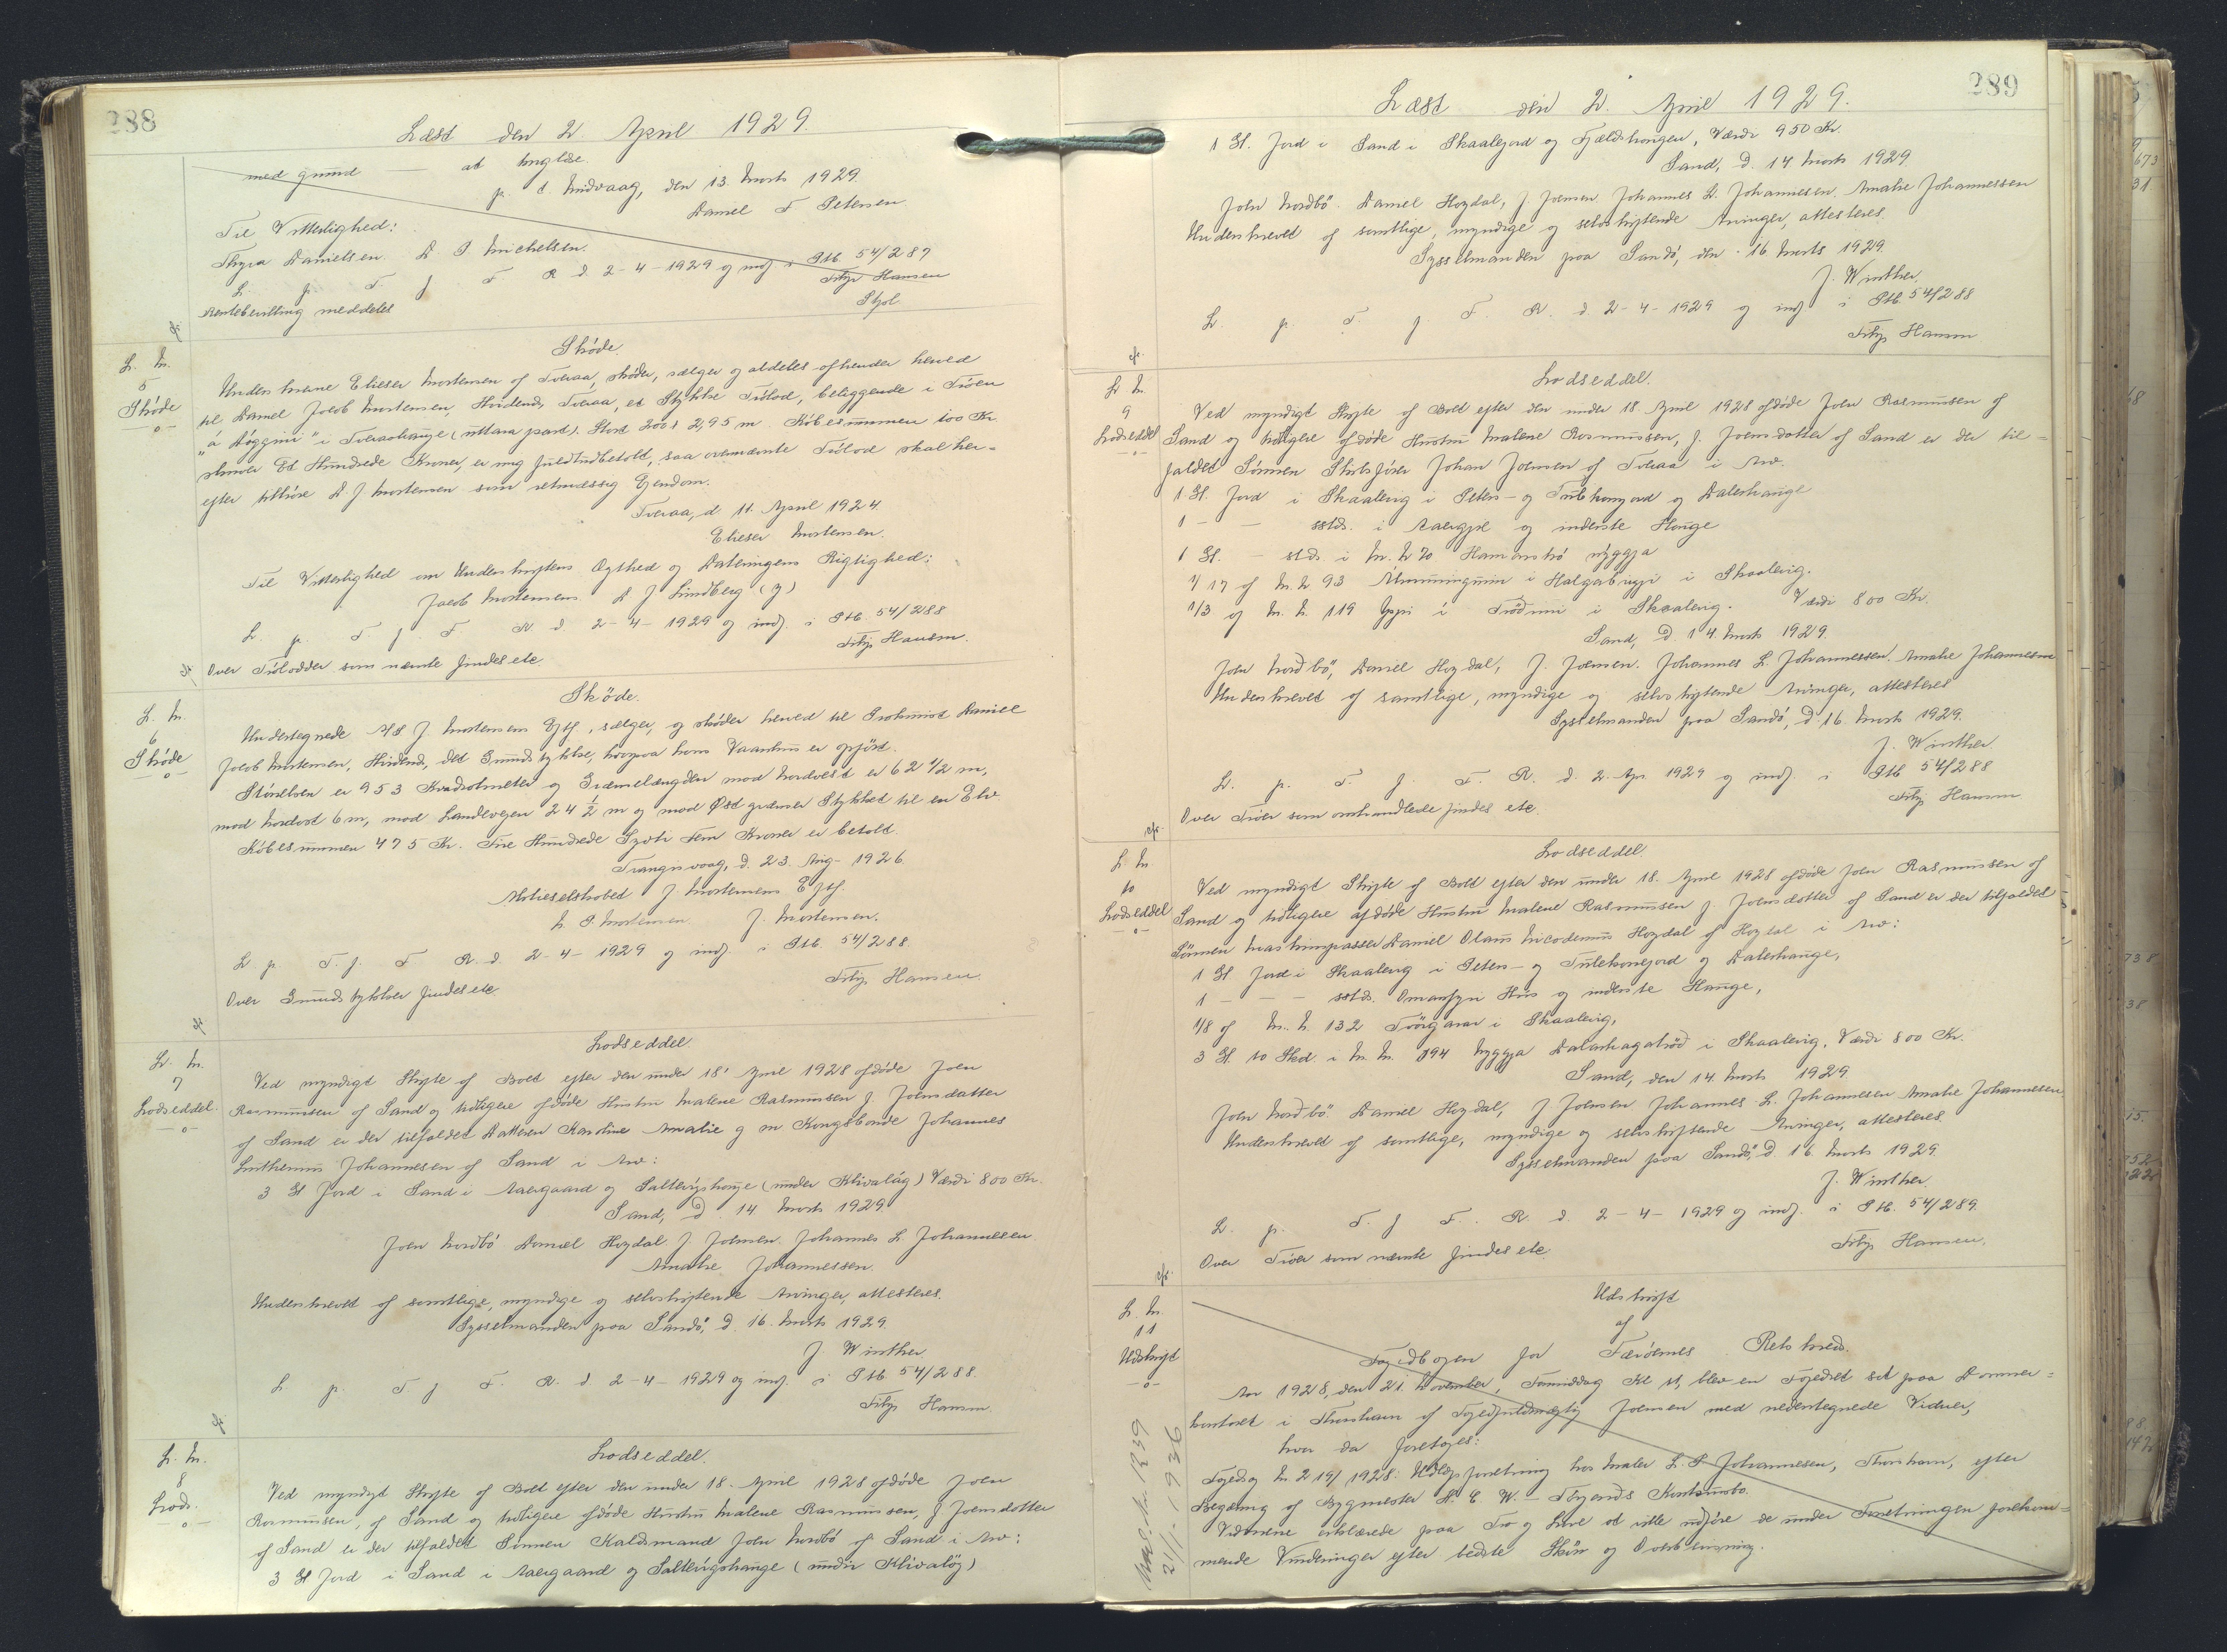 288
Læst den 2 April 1929.
med grund — at tinglæse.
p. t Midvaag, den 13. Marts 1929
Daniel F Petersen
Til Vitterlighed:
Thyra Danielsen. D. P Michelsen.
L. p. T f F R d 2-4-1929 og indf i Ptb 54/287
Filip Hansen
Rentebevilling meddeles
Stpl.
cfr
L. Nr.
5
Skøde
Skøde.
Underskrevne Elieser Mortensen af Tveraa, skøder, sælger og aldeles afhender herved
til Daniel Jacob Mortensen, Hvidenæs, Tveraa, et Stykke Trølod, beliggende i Trøen
"á Høggini" i Tveraahauge (uttara part). Stort 200 x 2,95 m. Købesummen 100 Kr
skriver Et Hundrede Kroner, er mig fuldtudbetalt, saa ovennævnte Trølod skal her-
efter tilhøre D. J. Mortensen som retmæssig Ejendom.
Tveraa, d 11. April 1924.
Elieser Mortensen.
Til Vitterlighed om Underskriftens Ægthed og Dateringens Rigtighed:
Jacob Mortensen D J Lindberg (?)
L. p. T. f. F R d. 2-4-1929 og indf i Ptb. 54/288
Filip Hansen.
cfr Over Trølodder som nævnte findes etc
L. Nr.
6
Skøde
Skøde.
Undertegnede A/S J. Mortensens Eftf, sælger, og skøder herved til Grosmid Daniel
Jacob Mortensen, Hvidenæs, det Grundstykke, hvorpaa hans Vaaningshus er opført.
Størrelsen er 953 Kvadratmeter og Grænselængden mod Nordvest er 62 1/2 m,
mod Nordost 6 m, mod Landevejen 24 1/2 m og mod Øst grænser Stykket til en Elv.
Købesummen 475 Kr. Fire Hundrede Syvti Fem Kroner er betalt.
Trangisvaag, d. 23. Aug- 1926.
Aktieselskabet J. Mortensens Eftf.
N. P. Mortensen J. Mortensen.
L p. T. f. F R. d. 2-4-1929 og indf. i Ptb. 54/288.
Filip Hansen
Over Grundstykker findes etc
cfr
L. Nr.
7
Lodseddel.
Lodseddel.
Ved myndigt Skifte af Boet efter den under 18' April 1928 afdøde Joen
Rasmussen af Sand og tidligere afdøde Hustru Malene Rasmussen f. Joensdatter
af Sand er der tilfaldet Datteren Karoline Amalie g m Kongsbonde Johannes
Lutherius Johannesen af Sand i Arv:
3 Gl Jord i Sand i Aaergaard og Saltvigshauge (under Klivaløg) Værdi 800 Kr.
Sand, D 14 Marts 1929
Joen Nordbø Daniel Høgdal J Joensen. Johannes L. Johannesen
Amalie Johannessen.
Underskrevet af samtlige, myndige og selvskiftende Arvinger, attesteres.
Sysselmanden paa Sandø, d. 16. Marts 1929
J Winther
L p. T. f F. R. d 2-4-1929 og indf. i Ptb 54/288.
Filip Hansen.
cfr
L. Nr.
8
Lods.
Lodseddel.
Ved myndigt Skifte af Boet efter den under 18. April 1928 afdøde Joen
Rasmussen, af Sand og tidligere afdøde Hustru Malene Rasmussen, f Joensdatter
af Sand er der tilfaldet Sønnen Kaldsmand Joen Nordbø af Sand i Arv:
3 Gl Jord i Sand i Aaergaard og Saltvigshauge (under Klivaløg)
289
Læst den 2. April 1929.
1 Gl. Jord i Sand i Skaalegord og Fjældshougen, Værdi 950 Kr.
Sand, D. 14 Marts 1929
Joen Nordbø. Daniel Høgdal, J. Joensen. Johannes L. Johannesen. Amalie Johannessen
Underskrevet af samtlige, myndige og selvskiftende Arvinger, attesteres.
Sysselmanden paa Sandø, den 16 Marts 1929.
J. Winther.
L. p. T. f. F. R. d. 2-4-1929 og indf i Ptb. 54/288
Filip Hansen
cfr.
L Nr.
9
Lodseddel
Lodseddel.
Ved myndigt Skifte af Boet efter den under 18. April 1928 afdøde Joen Rasmussen af
Sand og tidligere afdøde Hustru Malene Rasmussen, f. Joensdatter af Sand er der til-
faldet Sønnen Skibsfører Johan Joensen af Tveraa i Arv.
1 Gl. Jord i Skaalevig i Peters- og Trulskonejord og Dalerhauge
1 — — sstds. i Aaergjse og inderste Hauge
1 Gl. — stds i M. N 70 Hamarstrø nýggja
1/17 af M. N 93 Almenningurin i Halgabrugvi i Skaalevig.
1/3 og M. N. 119 Yppri í Trødnum i Skaalevig. Værdi 800 Kr.
Sand, D 14. Marts 1929.
Joen Nordbø, Daniel Høgdal, J. Joensen. Johannes L. Johannessen. Amalie Johannessen
Underskrevet af samtlige, myndige og selvskiftende Arvinger, attesteres
Sysselmanden paa Sandø, D 16. Marts 1929.
J. Winther.
L. p. T. f. F. R. d. 2. Apr. 1929 og indf. i Ptb 54/288
Filip Hansen
Over Trøer som omhandlede findes etc.
cfr.
L. Nr.
10
Lodseddel
Lodseddel.
Ved myndigt Skifte af Boet efter den under 18. April 1928 afdøde Joen Rasmussen af
Sand og tidligere afdøde Hustru Malene Rasmussen f. Joensdatter af Sand er der tilfaldet
Sønnen Maskinpasser Daniel Olaus Nicodemus Høgdal af Høgdal i Arv:
1 Gl Jord i Skaalevig i Peters- og Trulskonejord og Dalerhauge,
1 — — — sstds. Omanfyri Hús og inderste Hauge,
1/8 af M. N. 132 Tvørgarar i Skaalevig,
3 Gl. 10 Skd. i M. N. 194 Nýggja Dalarhagatrød i Skaalevig. Værdi 800 Kr.
Sand, den 14. Marts 1929
Joen Nordbø Daniel Høgdal, J Joensen Johannes L. Johannesen Amalie Johannesen
Underskrevet af samtlige, myndige og selvskiftende Arvinger, attesteres
Sysselmanden paa Sandø, D. 16. Marts 1929
J. Winther.
L. p. T. f F. R. d. 2-4-1929 og indf. i Ptb. 54/289.
Filip Hansen.
Over Trøer som nævnte findes etc
cfr.
L. Nr.
11
Udskrift
Udskrift
af
Fogedbogen for Færøernes Retskreds.
Aar 1928, den 21. November, Formiddag Kl 11, blev en Fogedret sat paa Dommer-
kontoret i Thorshavn af Fogedfuldmægtig Joensen med nedentegnede Vidner,
hvor da foretoges:
Fogedsag Nr. 219/1928: Udlægsforretning hos Maler L. P Johannesen, Thorshavn, efter
Begæring af Bygmester H. C. W. Tórgarðs Konkursbo.
Vidnerne erklærede paa Tro og Love at ville udføre de under Forretningen forekom-
mende Vurderinger efter bedste Skøn og Overbevisning.
21/11-1936